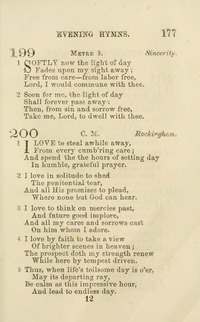 EVENING HYMNS. 177
199 METRE 3. Sincerity.
1 SOFTLY now the light of day
Fades upon my sight away;
Free from care—from labor free,
Lord, I would commune with thee.
2 Soon for me, the light of day
Shall forever pass away:
Then, from sin and sorrow free,
Take me, Lord, to dwell with thee.
200 C. M. Rockingham.
1 I LOVE to steal awhile away,
From every cumb'ring care;
And spend the the hours of setting day
In humble, grateful prayer.
2 I love in solitude to shed
The penitential tear,
And all His promises to plead,
Where none but God can hear.
3 I love to think on mercies past,
And future good implore,
And all my cares and sorrows cast
On him whom I adore.
4 I love by faith to take a view
Of brighter scenes in heaven;
The prospect doth my strength renew
While here by tempest driven.
5 Thus, when life's toilsome day is o'er,
May its departing ray,
Be calm as this impressive hour,
And lead to endless day.
12